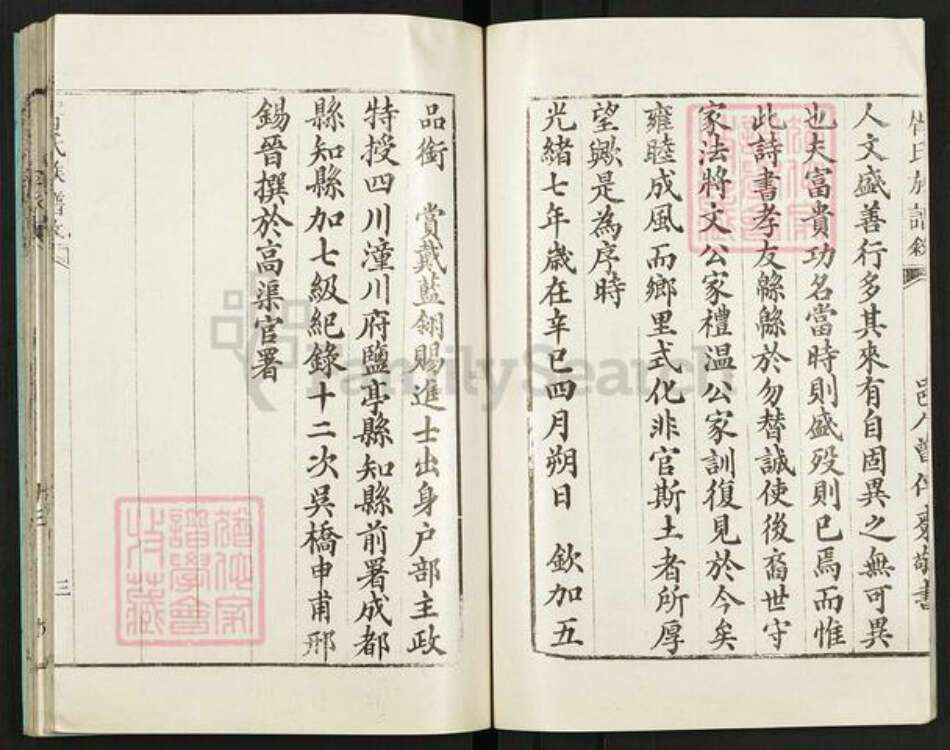 人文盛善行多其來有自固異之無可異
也夫富貴功名當時則盛歿則已焉而惟
此詩書孝友緜緜於勿替誠使後裔世守
家法將文公家禮溫公家訓復見於今矣
雍睦成風而鄉里式化非官斯土者所厚
望歟是為序時
光緒七年歲在辛巳四月朔日 欽加五
品銜 賞戴藍翎賜進士出身户部主政
特授四川潼川府鹽亭縣知縣前署成都
縣知縣加七級紀錄十二次吳橋申甫邢
錫晉撰於高渠官署
三
FamilySearch